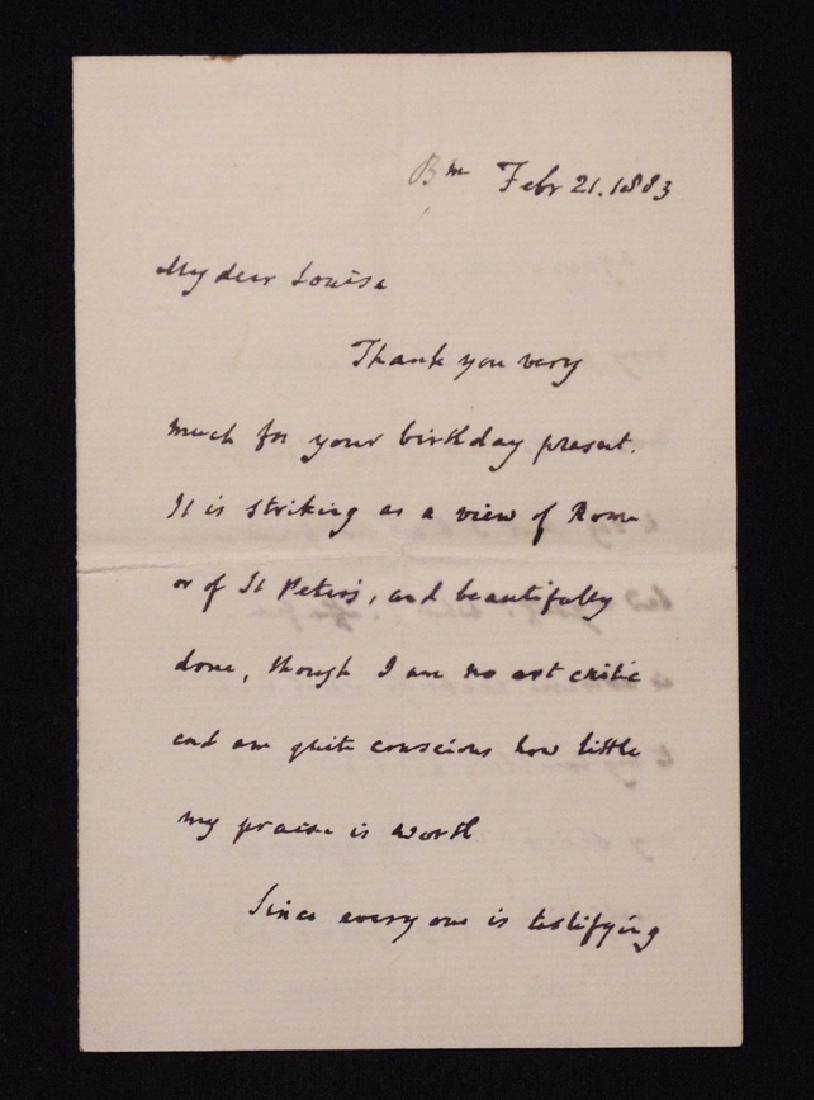 Bm Febr 21. 1883
My dear Louisa
Thank you very
much for your birthday present.
It is striking as a view of Rome
or of St Peter's, and beautifully
done, though I am no art critic
and am quite conscious how little
my praise is worth
Since every one is testifying